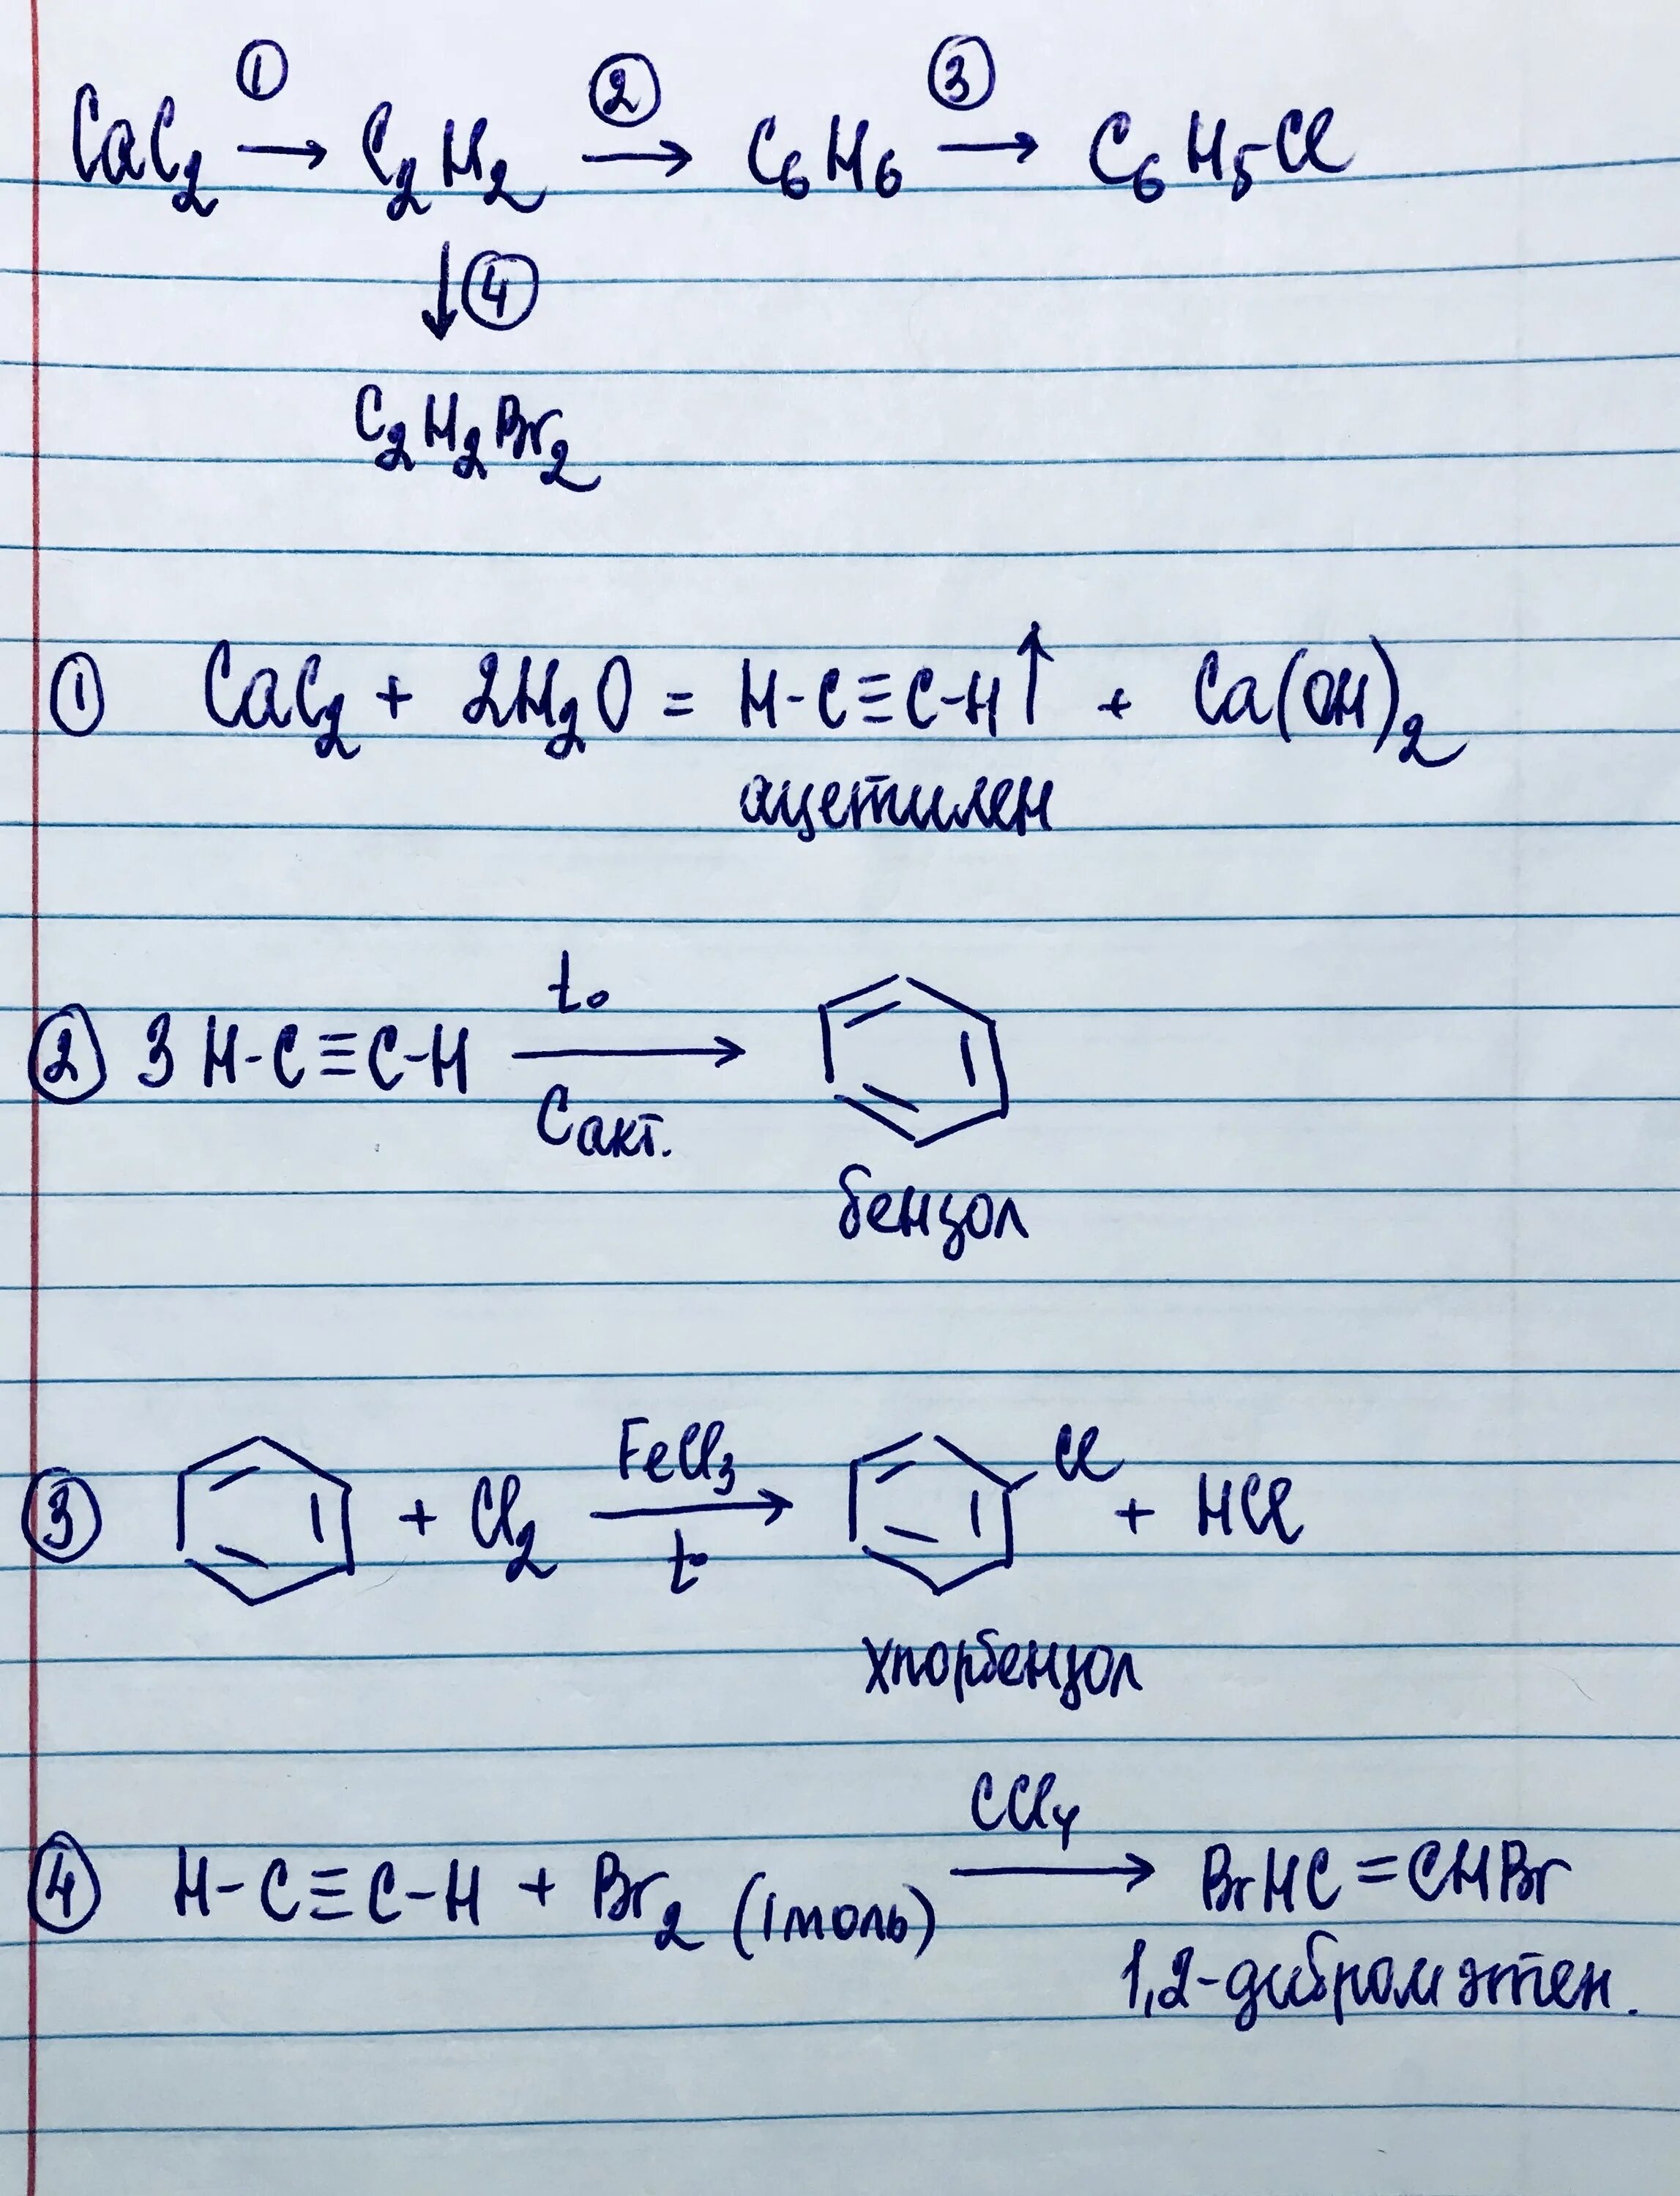 ① ② ③
CaC₂ → C₂H₂ → C₆H₆ → C₆H₅Cl
↓ ④
C₂H₂Br₂
① CaC₂ + 2H₂O = H-C≡C-H↑ + Ca(OH)₂
ацетилен
t°
② 3 H-C≡C-H →
Cакт.
бензол
FeCl₃
Cl
③ + Cl₂ → + HCl
t°
хлорбензол
CCl₄
④ H-C≡C-H + Br₂ (1 моль) → BrHC=CHBr
1,2-дибромэтен.